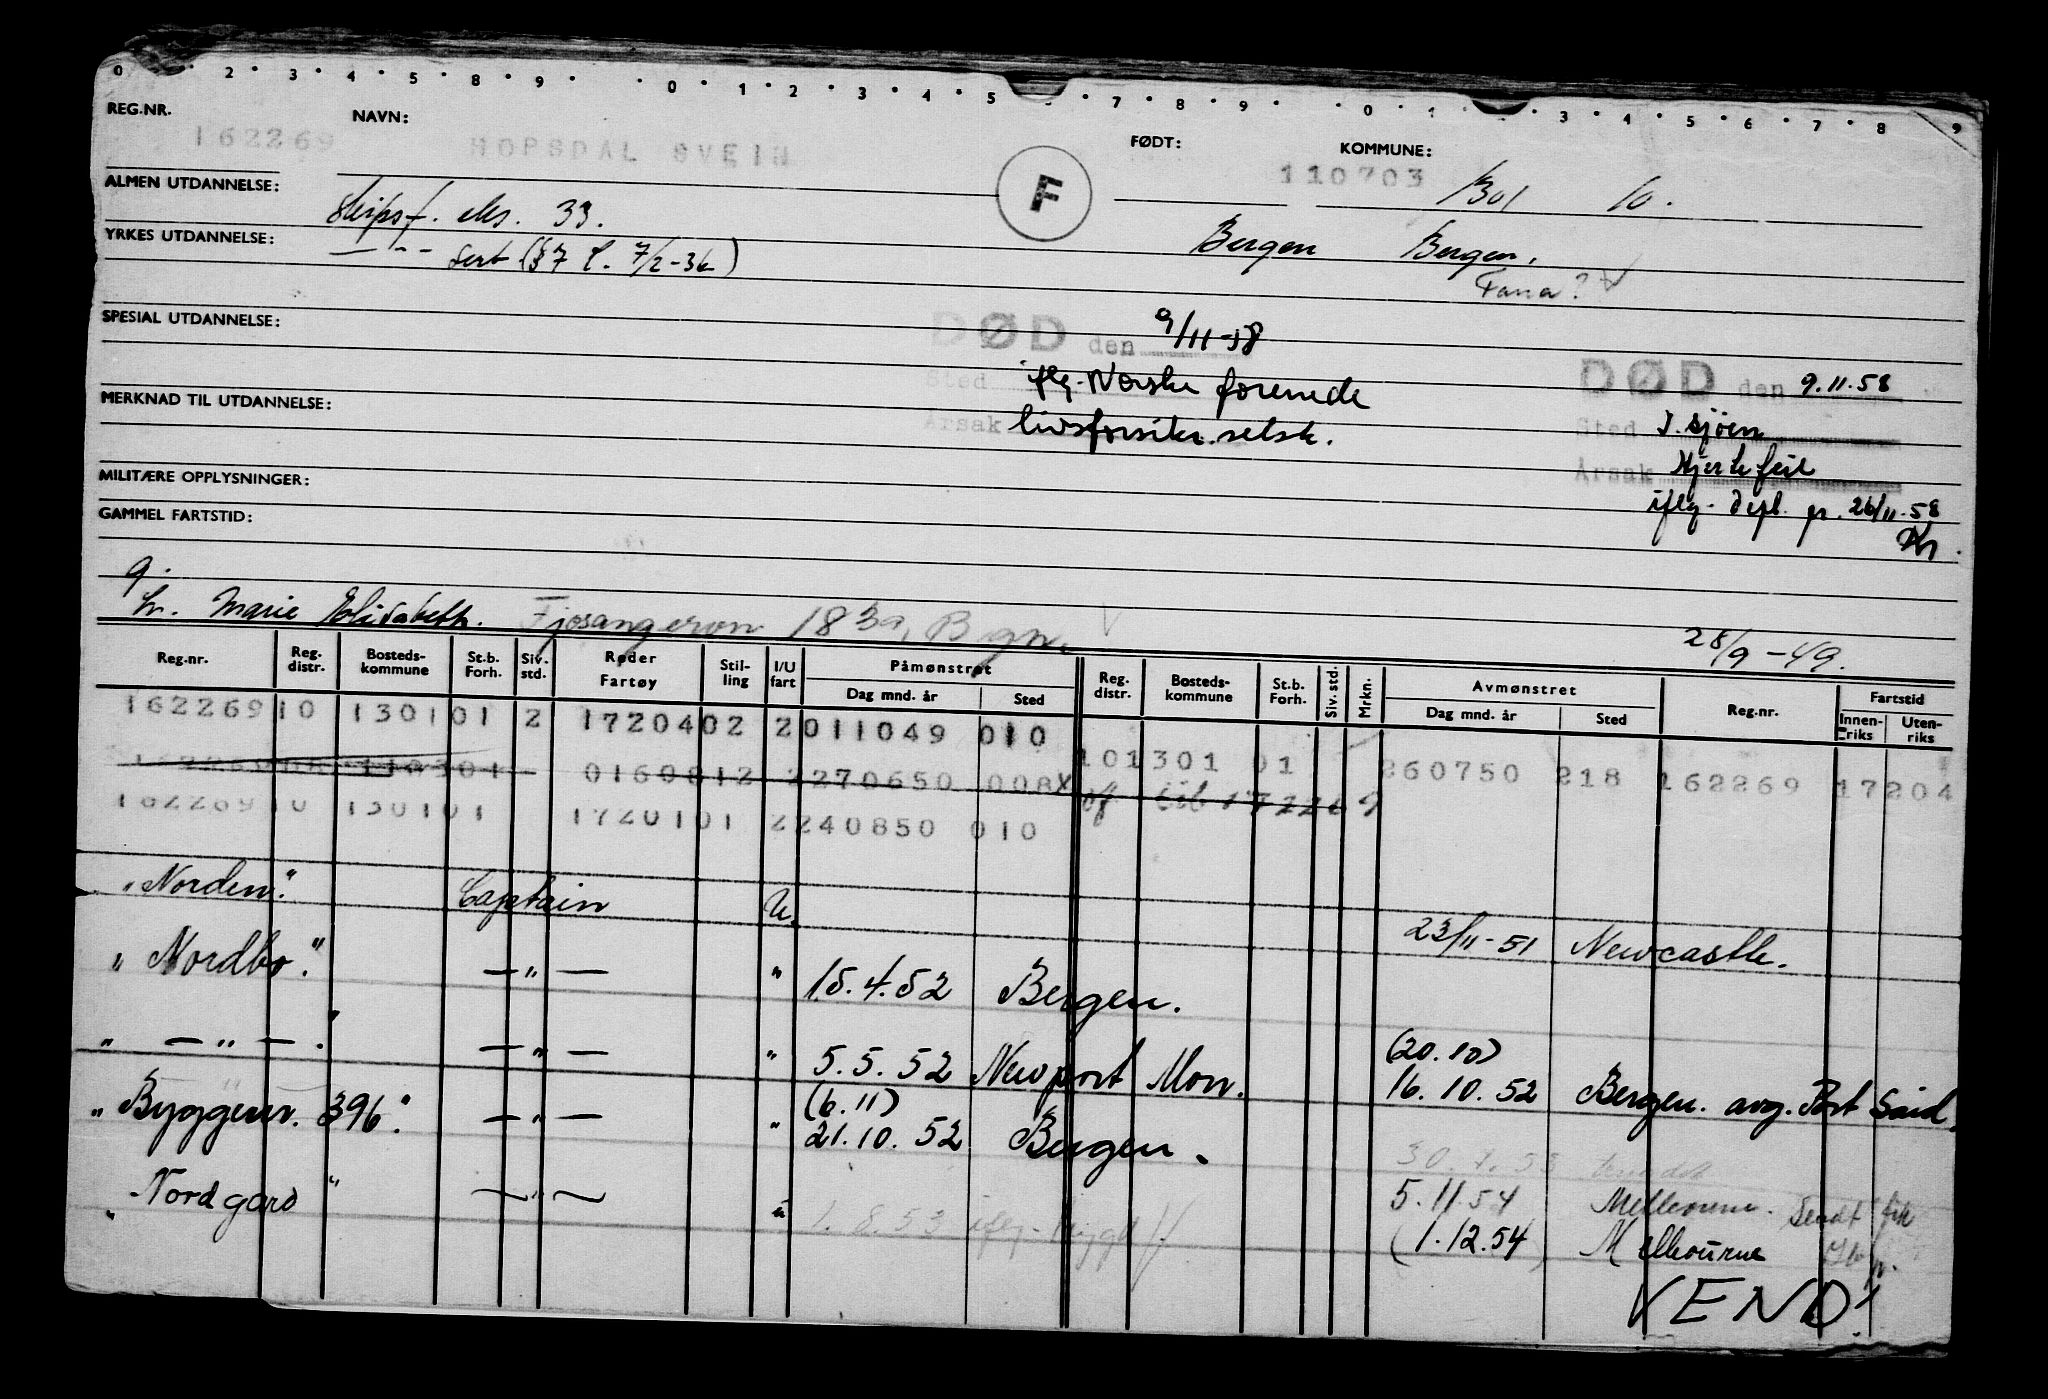 0 2 3 4 5 8 9 0 1 2 3 4 5 7 8 9 0 1 3 4 5 6 7 8 9
REG.NR. NAVN: FØDT: KOMMUNE:
162269 HOPSDAL SVEIN F 110703 1301 10.
ALMEN UTDANNELSE: Skipsf. eks. 33.
Bergen Bergen.
YRKES UTDANNELSE: — " - sert (§7 l. 7/2-36)
Fana?
SPESIAL UTDANNELSE:
DØD den 9/11-58
Sted iflg. Norske forenede
Årsak livsforsikr. selsk.
DØD den 9.11.58
Sted I sjøen
Årsak Hjertefeil
iflg. depl. pr. 26/11-58
MERKNAD TIL UTDANNELSE:
MILITÆRE OPPLYSNINGER:
GAMMEL FARTSTID:
g.
fr. Marie Elisabeth. Fjøsangervn 183a, Bgn.
28/9-49.
Reg.nr. Reg. distr. Bosteds-kommune St.b. Forh. Siv. std. Reder Fartøy Stil-ling I/U fart Påmønstret Dag mnd. år Sted Reg. distr. Bosteds-kommune St.b. Forh. Siv. std. Mrkn. Avmønstret Dag mnd. år Sted Reg.nr. Fartstid Innen-riks Uten-riks
162269 10 1301 01 2 17204 02 2 011049 010
10 1301 01 260750 218 162269 17204
01608 12 2 270650 008X
162269 10 1301 01 17201 01 2 240850 010
"Norden". Captain U. 23/11-51 Newcastle.
"Nordbo." — " — " 15.4.52 Bergen.
" — " — . — " — " 5.5.52 Newport Mon. (20.10) 16.10.52 Bergen. avg. Port Said.
"Byggenr. 396". — " — " (6.11) 21.10.52 Bergen.
30.7.53
"Nordgard" — " — " 1.8.53 iflg. 5.11.54 Melbourne. Sendt
(1.12.54) Melbourne
VEND!